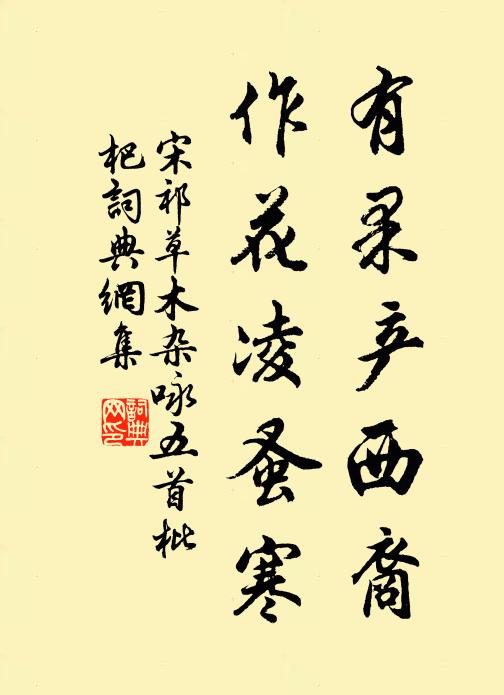 有果产西裔
作花凌蚤寒
宋祁草木杂咏五首枇
杷詞典網集
詞典網印